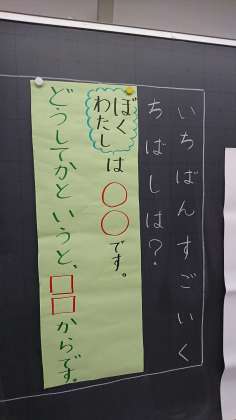 いちばんすごいく
ちばしは？
ぼく
わたし
は○○です。
どうしてかというと、□□からです。